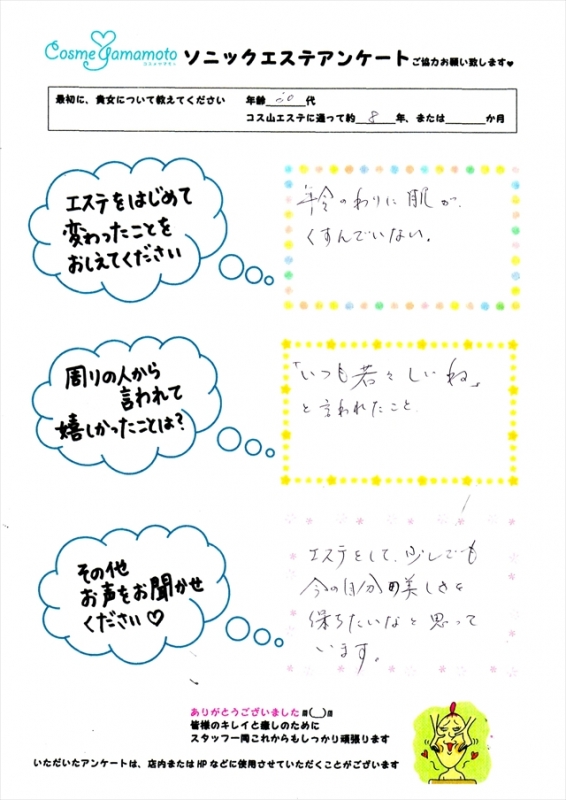 Cosme Yamamoto
コスメヤマモト
ソニックエステアンケートご協力お願い致します♥
最初に、貴女について教えてください 年齢 代
コス山エステに通って約 8 年、または か月
エステをはじめて
変わったことを
おしえてください
年令のわりに肌が、
くすんでいない。
周りの人から
言われて
嬉しかったことは?
「いつも若々しいね」
と言われたこと.
その他
お声をお聞かせ
ください♡
エステをして、少しでも
今の自分の美しさを
保ちたいなと思って
います。
ありがとうございました
皆様のキレイと癒しのために
スタッフ一同これからもしっかり頑張ります
いただいたアンケートは、店内またはHPなどに使用させていただくことがございます